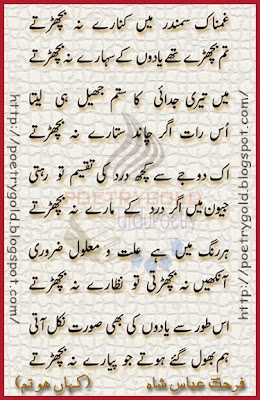 غمناک سمندر میں کنارے نہ بچھڑتے
تم بچھڑے تھے یادوں کے سہارے نہ بچھڑتے
میں تیری جدائی کا ستم جھیل ہی لیتا
اُس رات اگر چاند ستارے نہ بچھڑتے
اک دوجے سے کچھ درد کی تقسیم تو رہتی
جیون میں اگر درد کے مارے نہ بچھڑتے
ہر رنگ میں ہے علت و معلول ضروری
آنکھیں نہ بچھڑتی تو نظارے نہ بچھڑتے
اس طور سے یادوں کی بھی صورت نکل آتی
ہم بھول گئے ہوتے جو پیارے نہ بچھڑتے
فرحت عباس شاہ (کہاں ہو تم)
http://poetrygold.blogspot.com/
http://poetrygold.blogspot.com/
POETRYGOLD